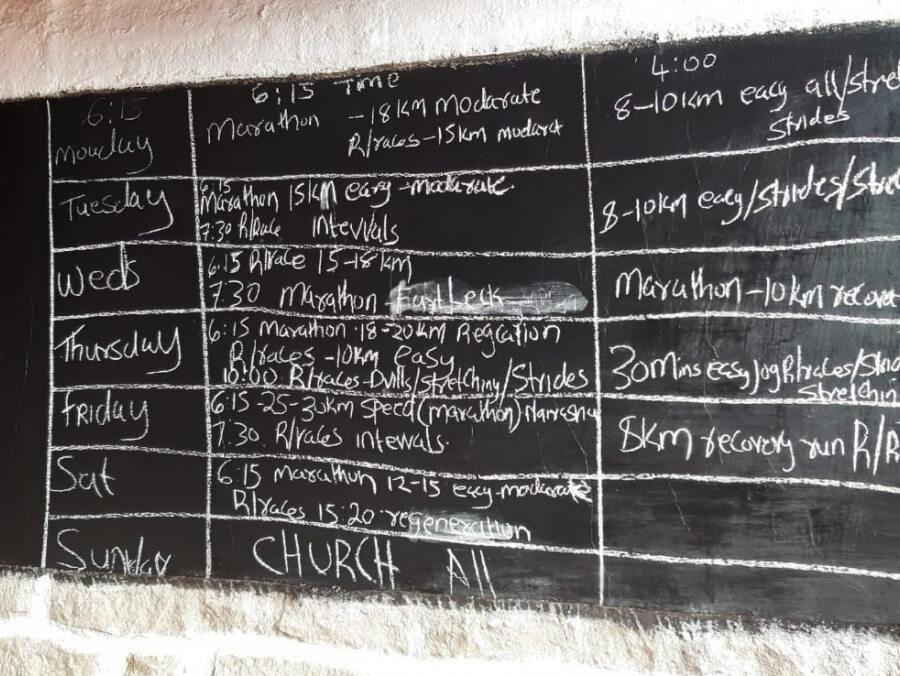 6:15 Time
4:00
6:15
Monday
Marathon - 18KM modarate
R/races - 15KM modarat
8-10KM easy all/Stre
Strides
Tuesday
6.15
Marathon 15KM easy - modarate.
7.30 R/Race Intervals
8-10KM easy/Strides/Stre
Weds
6.15 R/race 15-18KM
7.30 Marathon - Fartleck
Marathon - 10KM recove
Thursday
6:15 Marathon 18-20KM
R/races - 10KM easy
10:00 R/races - Drills/stretching/Strides
30Mins easy jog R/races/Strid
Stretchin
Friday
6:15 - 25-30KM Speed (marathon)
7.30. R/races intervals.
8KM recovery run R/R
Sat
6:15 Marathon 12-15 easy-modarate
R/races 15:20 regeneration
Sunday
CHURCH All